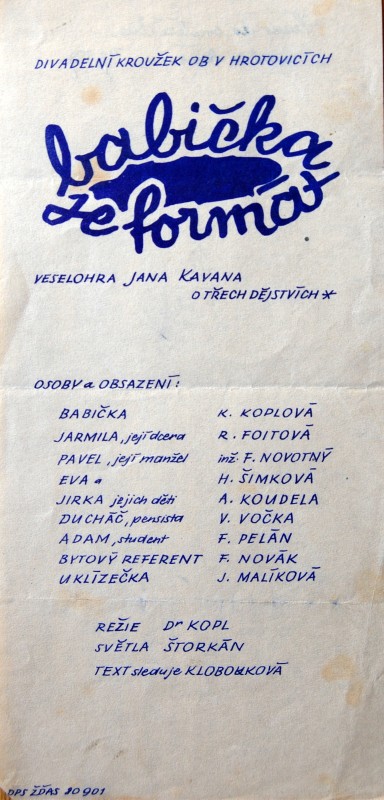 DIVADELNÍ KROUŽEK OB V HROTOVICÍCH
babička
ze formát
VESELOHRA JANA KAVANA
O TŘECH DĚJSTVÍCH *
OSOBY a OBSAZENÍ:
BABIČKA K. KOPLOVÁ
JARMILA, její dcera R. FOITOVÁ
PAVEL, její manžel inž. F. NOVOTNÝ
EVA a H. ŠIMKOVÁ
JIRKA jejich děti A. KOUDELA
DUCHÁČ, pensista V. VOČKA
ADAM, student F. PELÁN
BYTOVÝ REFERENT F. NOVÁK
UKLÍZEČKA J. MALÍKOVÁ
REŽIE Dr KOPL
SVĚTLA ŠTORKÁN
TEXT sleduje KLOBOUKOVÁ
DPS ŽĎAS 20901